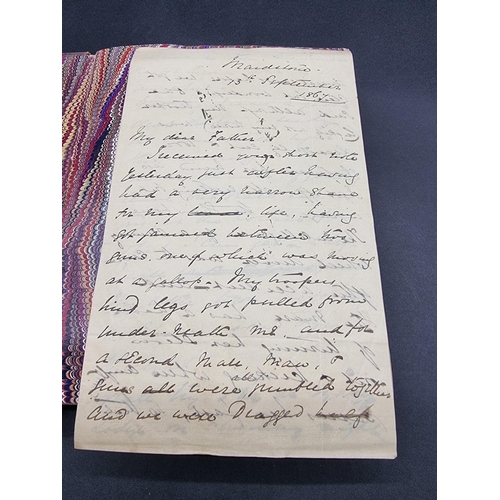 Maidstone.
13th September
1867
My dear Father
I received your short note
Yesterday just after having
had a very narrow shave
for my life, having
got jammed between two
guns, one of which was moving
at a gallop. My troopers
hind legs got pulled from
under-neath me and for
a second Male, Man, &
guns all were jumbled together
And we were Dragged half